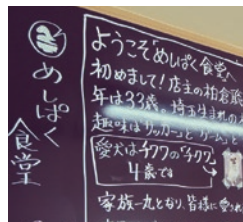 めしぱく食堂
ようこそ「めしぱく食堂へ
初めまして!店主の柏倉
年は33歳。埼玉生まれの
趣味はサッカーと
愛犬はチワワの"チクワ
4歳です
家族一丸となり、皆様に愛